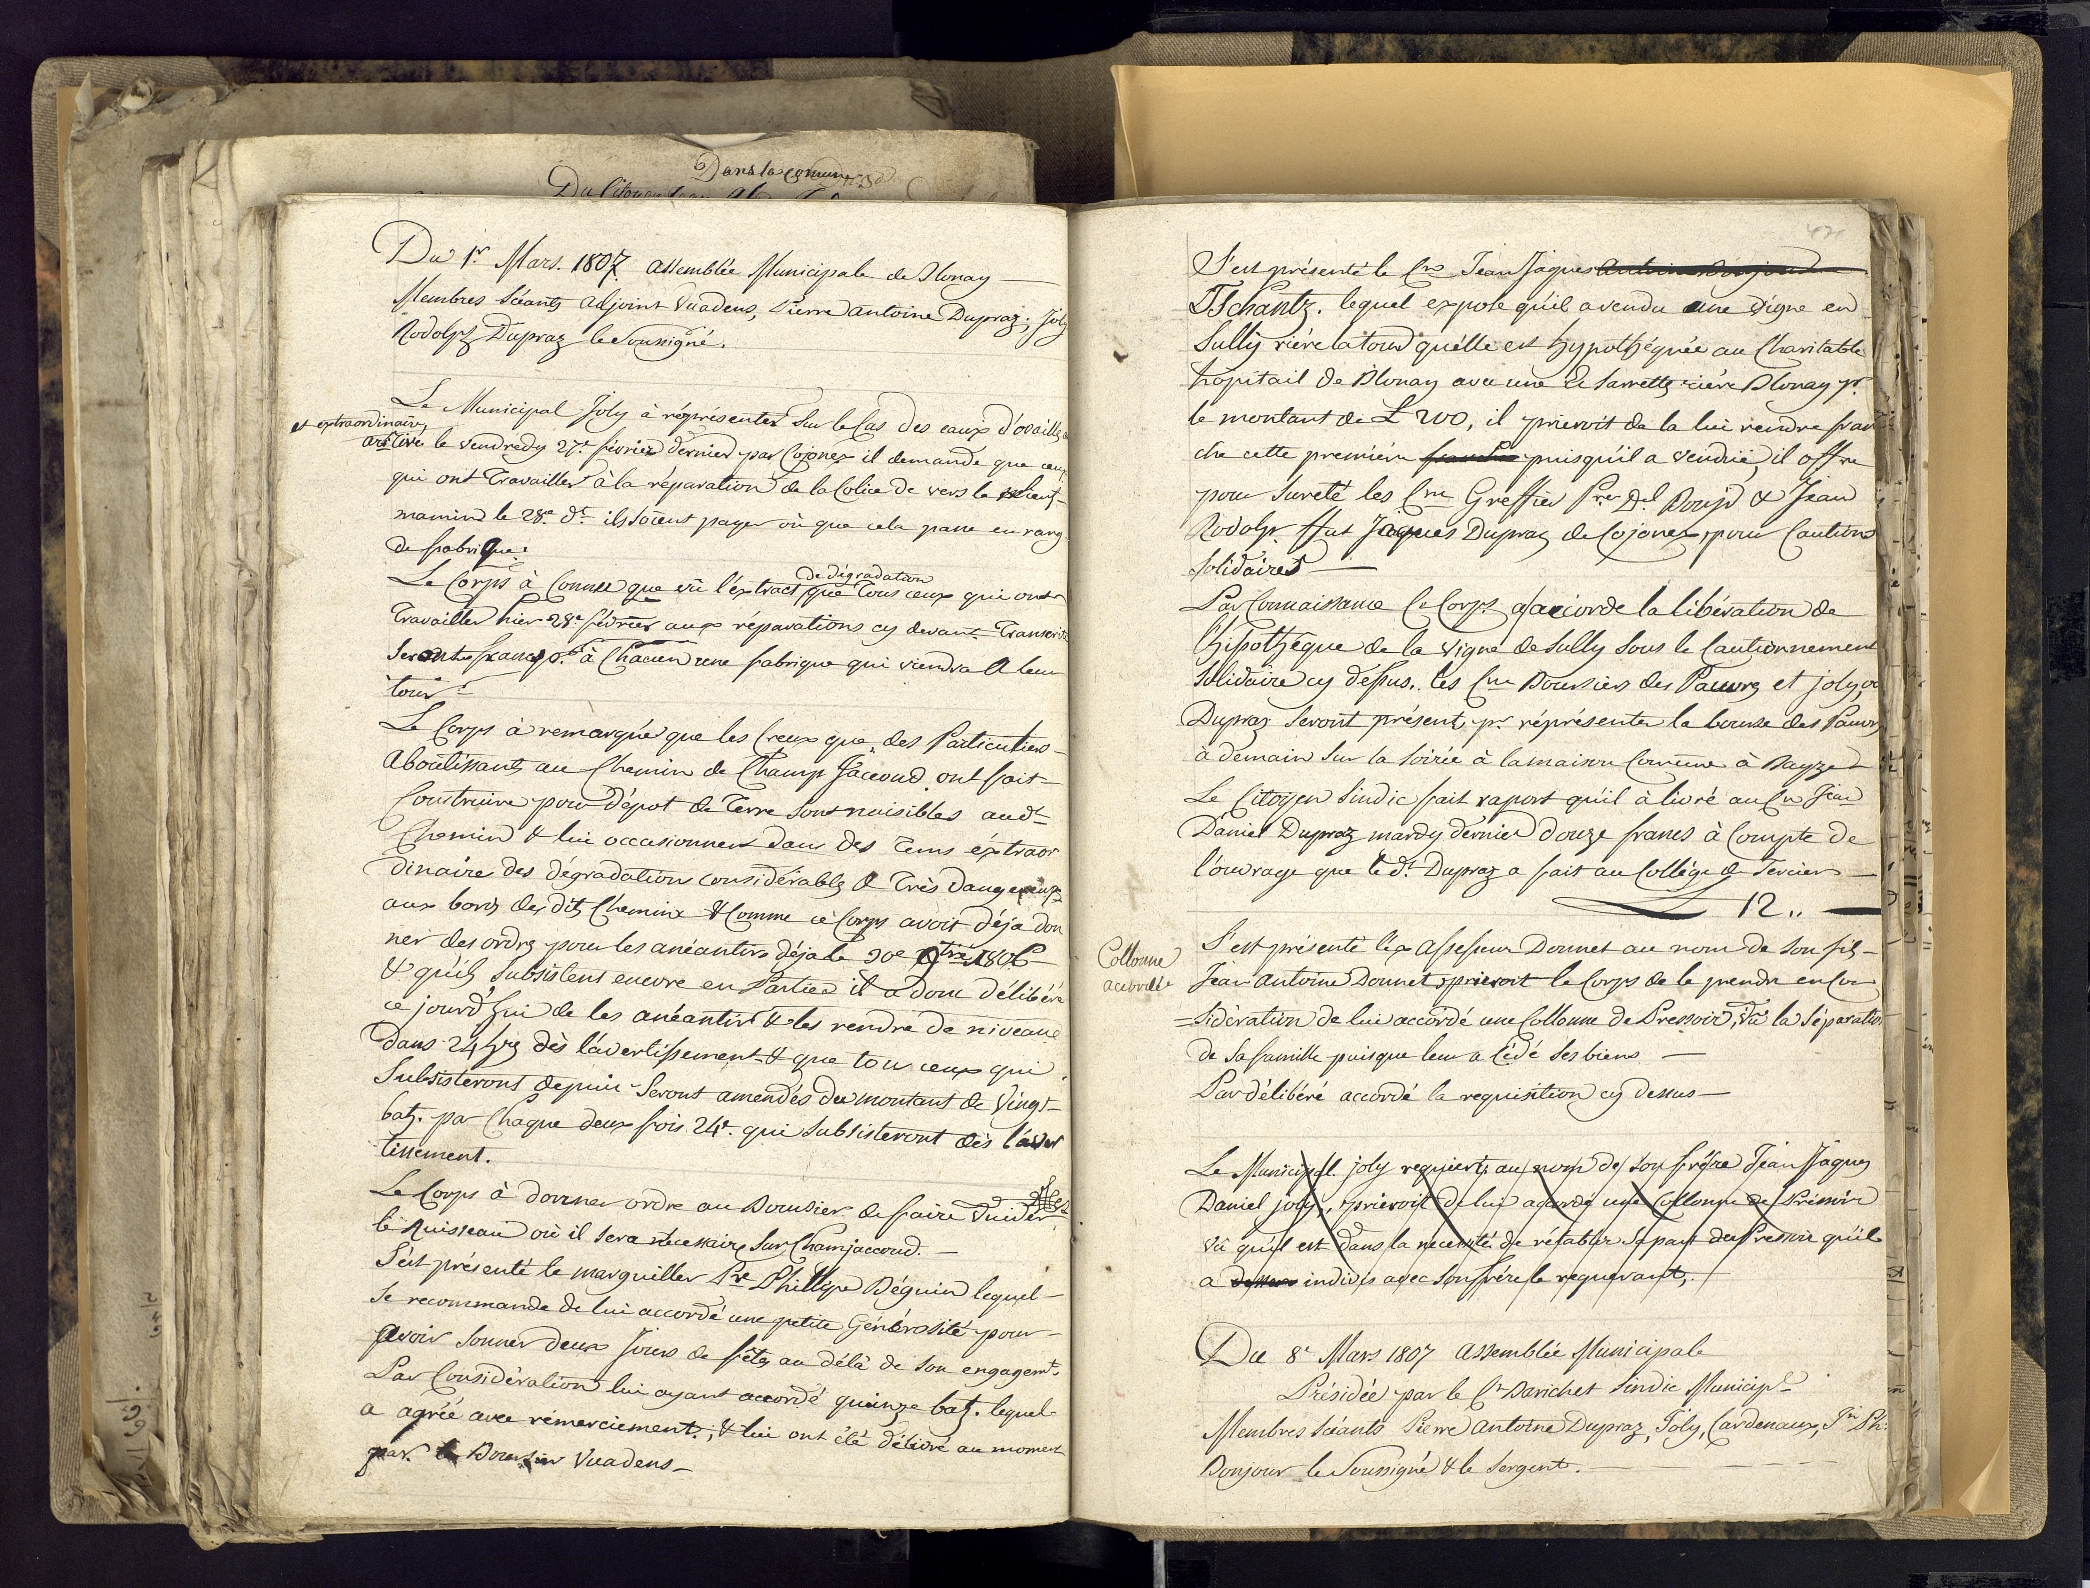 Dans la comune
Du 1r Mars. 1807 assemblée Municipale de Blonay
Membres Séants adjoint Vuadens, Pierre Antoine Dupraz, Joly
Rodolph Dupraz le Soussigné.
Le Municipal Joly à réprésenter Sur le Cas des eaux d'ovaille
et extraordinaire
arrivé le Vendredy 27e février dernier par Cojonex il demande que ceux
qui ont Travailler à la réparation de la Colice de vers le
mamin le 28e dt ils soient payer où que cela passe en rang
de fabrique.
de dégradation
Le Corps à Connu que vû l'éxtract que Tous ceux qui ont
Travailler hier 28e février aux réparations cy devant Transcrite
Seront francs à Chacun une fabrique qui viendra à leur
tour
Le Corps à remarqué que les Creux que des Particuliers
Aboutissants au Chemin de Champ Jaccoud ont fait
Construire pour dépot de Terre Sont nuisibles audt
Chemin & lui occasionnent dans des Tems éxtraor
dinaire des dégradation considérable & Très dangereux
aux bords des dits Chemins & Comme ce Corps avoit déja don
ner des ordre pour les anéantir déja le 20e 9bre 1806
& qu'ils Subsistent encore en Partie il a donc délibéré
ce jourd'hui de les anéantir & les rendre de niveau
dans 24 hrs dès l'avertissement & que tous ceux qui
Subsisteront depuis Seront amendés du montant de Vingt
batz. par Chaque deux fois 24r. qui Subsisteront dès l'aver
tissement.
Le Corps à donner ordre au Boursier de faire Vuider
le Ruisseau où il Sera nécessaire Sur Chamjaccoud.
S'est présenté le marguiller Pre Phillipe Béguin lequel
Se recommande de lui accordé une petite Générosité pour
avoir Sonner deux Jours de fête au délà de Son engagemt.
Par Considération lui ayant accordé quinze batz. lequel
a agréé avec rémerciement, & lui ont été délivré au moment
par le Boursier Vuadens
S'est présenté le Cn Jean Jaques Antoine Bonjour
Tschantz. lequel expose qu'il a vendu une Vigne en
Sully rière la tour qu'elle est hypothéquée au Charitable
hopitail de Blonay avec une Es Sarrettes rière Blonay pr
le montant de L 200, il prieroit de la lui rendre fran
che cette première puisqu'il a vendüe, il offre
pour Sureté les Cns Greffier Pre Dl Bonjr & Jean
Rodolp. ffeu Jaques Dupraz de Cojonex, pour Cautions
Solidaires
Par Connaissance Ce Corps a accorde la libération de
l'hipothèque de la Vigne de Sully Sous le Cautionnement
Solidaire cy dessus, les Cns Boursiers des Pauvres et joly, ou
Dupraz Seront présent pr. réprésenter la bourse des Pauvres
à demain Sur la Soirée à la maison Comune à Bayze
Le Citoyen Sindic fait raport qu'il à livré au Cn Jean
Daniel Dupraz mardy dernier douze francs à Compte de
l'ouvrage que le dt. Dupraz a fait au Collège de Tercier
12 "
Collonne
accordée
S'est présenté l'ex assesseur Donnet au nom de Son fils
Jean Antoine Donnet, prieroit le Corps de le prendre en Con
=Sidération de lui accordé une Collonne de Pressoir, vû la Séparation
de Sa famille puisque leur a Cédé Ses biens
Par délibéré accordé la requisition cy dessus
Le Municipal joly requiert, au nom de Son frére Jean Jaques
Daniel joly, prieroit de lui accordé une Collonne de Préssoir
vû qu'il est dans la necessité de rétablir Sa part du Pressoir qu'il
a indivis avec Son frére le requerant,
Du 8e Mars 1807 Assemblée Municipale
Présidée par le Cn Darichet Sindic Municipl
Membres Séants Pierre Antoine Dupraz, Joly, Cardenaux, Jn Ph:
Bonjour le Soussigné & le Sergent.